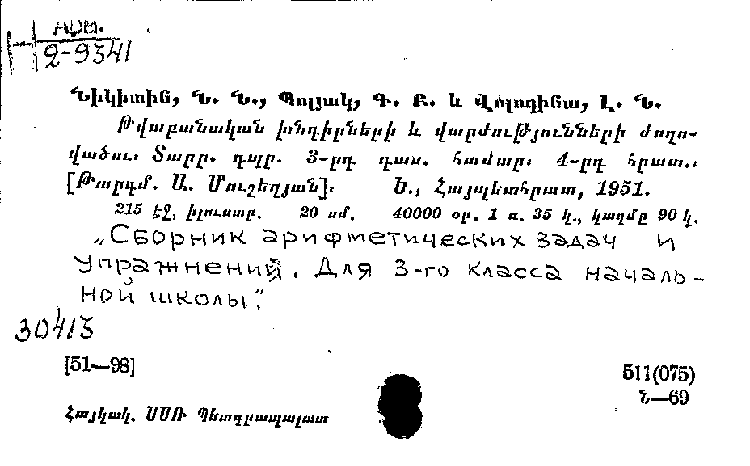 АРМ.
2-9341
Նիկիտին, Ն. Ն., Պոլյակ, Գ. Բ. և Վոլոդինա, Լ. Ն.
Թվաբանական խնդիրների և վարժությունների ժողո-
վածու. Տարր. դպր. 3-րդ դաս. համար. 4-րդ հրատ.
[Թարգմ. Ա. Մուշեղյան]. Ե., Հայպետհրատ, 1951.
215 էջ, իլուստր. 20 սմ. 40000 օր. 1 ռ. 35 կ., կազմը 90 կ.
„Сборник арифметических задач и
упражнений. Для 3-го класса началь-
ной школы".
30413
[51—98]
511(075)
Ն—69
Հայկակ. ՍՍՌ Պետգրապալատ